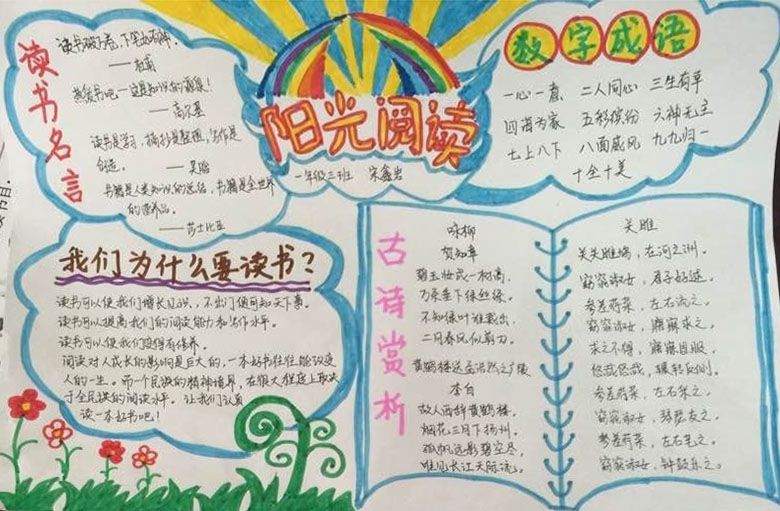 读书名言
读书破万卷,下笔如有神。
——杜甫
热爱书吧——这是知识的源泉!
——高尔基
读书是学习,摘抄是整理,写作是
创造。 ——吴晗
书籍是人类知识的
书籍是全世界
的营养品。
——莎士比亚
阳光阅读
一年级三班 宋鑫岩
数字成语
一心一意 二人同心 三生有幸
四海为家 五彩缤纷 六神无主
七上八下 八面威风 九九归一
十全十美
我们为什么要读书?
读书可以使我们增长见识,不出门便可知天下事。
读书可以提高我们的阅读能力和写作水平。
读书可以使我们变得有修养。
阅读对人成长的影响是巨大的,一本好书往往能改变
人的一生。而一个民族的精神境界,在很大程度上取决
于全民族的阅读水平。让我们认真
读一本好书吧!
古诗赏析
咏柳
贺知章
碧玉妆成一树高,
万条垂下绿丝绦。
不知细叶谁裁出,
二月春风似剪刀。
黄鹤楼送孟浩然之广陵
李白
故人西辞黄鹤楼,
烟花三月下扬州。
孤帆远影碧空尽,
唯见长江天际流。
关雎
关关雎鸠,在河之洲。
窈窕淑女,君子好逑。
参差荇菜,左右流之。
窈窕淑女,寤寐求之。
求之不得,寤寐思服。
悠哉悠哉,辗转反侧。
参差荇菜,左右采之。
窈窕淑女,琴瑟友之。
参差荇菜,左右芼之。
窈窕淑女,钟鼓乐之。